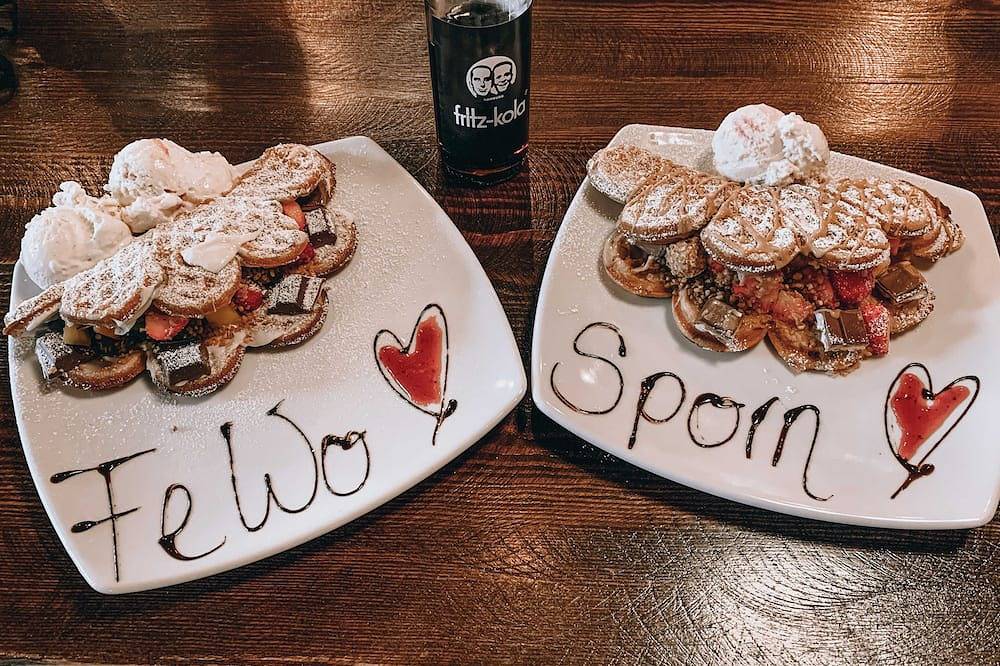 fritz-kola
FeWo
Sporn